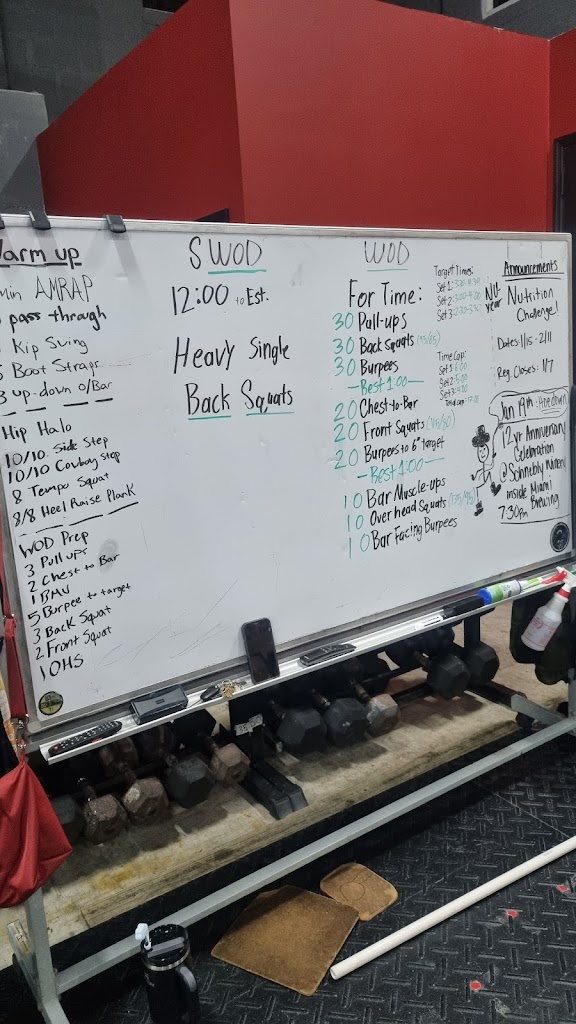 Warm up
min AMRAP
pass through
Kip Swing
5 Boot Straps
3 up-down o/Bar
Hip Halo
10/10 Side Step
10/10 Cowboy Step
8 Tempo Squat
8/8 Heel Raise Plank
WOD Prep
3 Pull ups
2 Chest to Bar
1 BMU
5 Burpee to target
3 Back Squat
2 Front Squat
1 OHS
SWOD
12:00 to Est.
Heavy Single
Back Squats
WOD
For Time:
30 Pull-ups
30 Back Squats (95/65)
30 Burpees
—Rest 1:00—
20 Chest-to-Bar
20 Front Squats (115/80)
20 Burpees to 6" target
—Rest 1:00—
10 Bar Muscle-Ups
10 Overhead Squats (135/95)
10 Bar Facing Burpees
Target Times:
Set 1:
Set 2:
Set 3:
Time Cap:
Set 1: 6:00
Set 2: 5:00
Set 3: 4:00
Total cap:
Announcements
NU year
Nutrition
Challenge!
Dates: 1/15 - 2/11
Reg. Closes: 1/7
Jan 19th: Hoedown
12yr Anniversary
Celebration
@ Schnebly Winery
inside Miami
Brewing
7:30pm